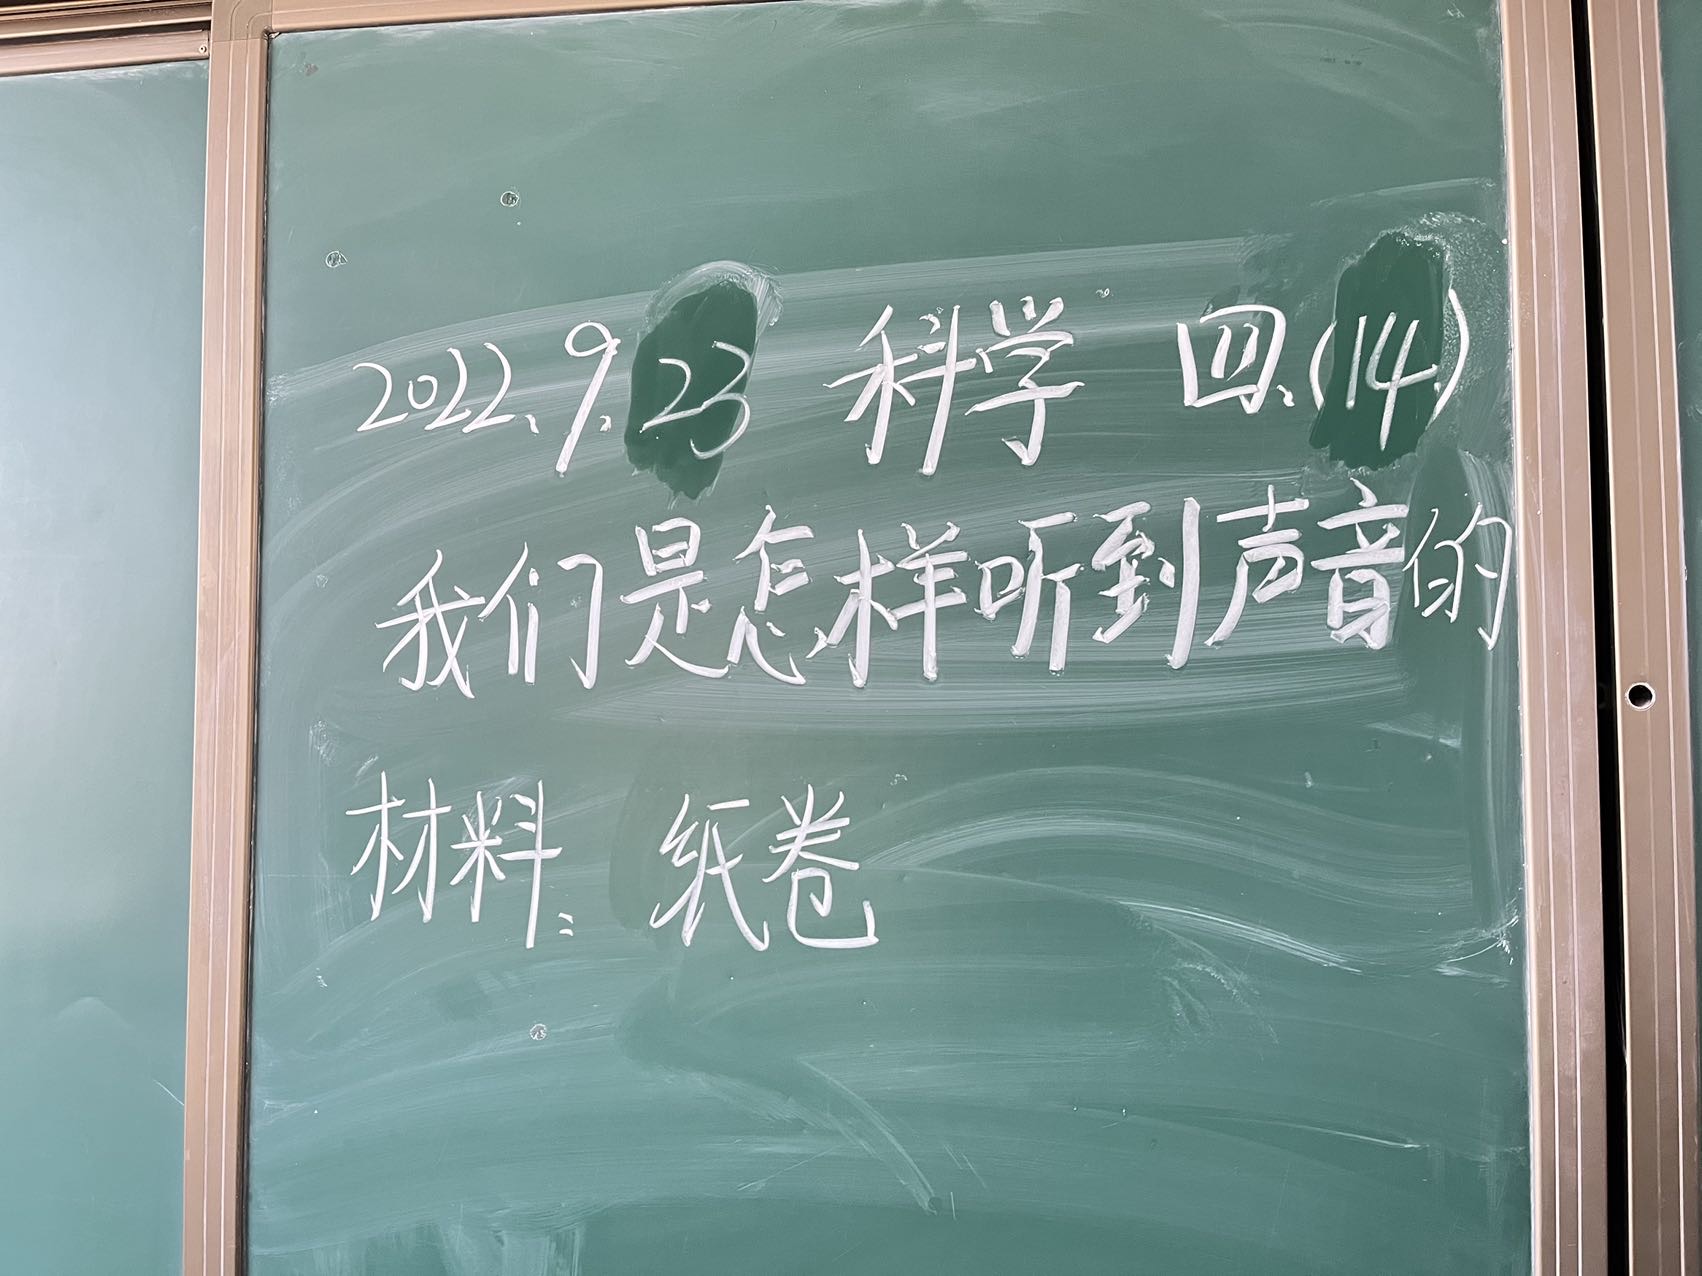 2022.9.23 科学 四.(14)
我们是怎样听到声音的
材料: 纸卷